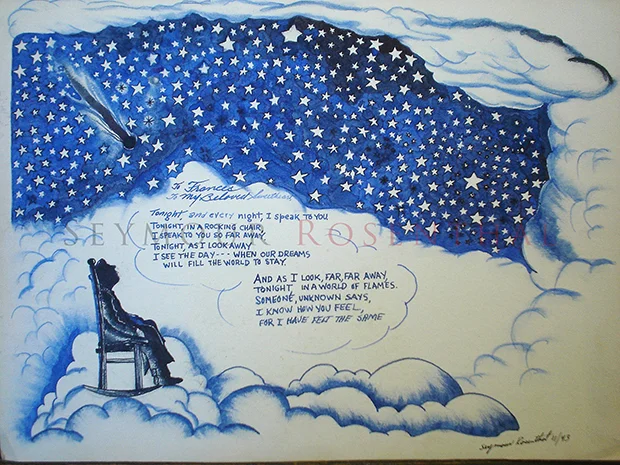 To Francis
To My Beloved Sweetheart
Tonight and every night, I speak to you
Tonight, in a rocking chair
I speak to you so far away
Tonight, as I look away
I see the day --- when our dreams
will fill the world to stay.
And as I look, far, far away,
Tonight in a world of flames.
Someone, unknown says,
I know how you feel,
for I have felt the same
Seymour Rosenthal
Seymour Rosenthal